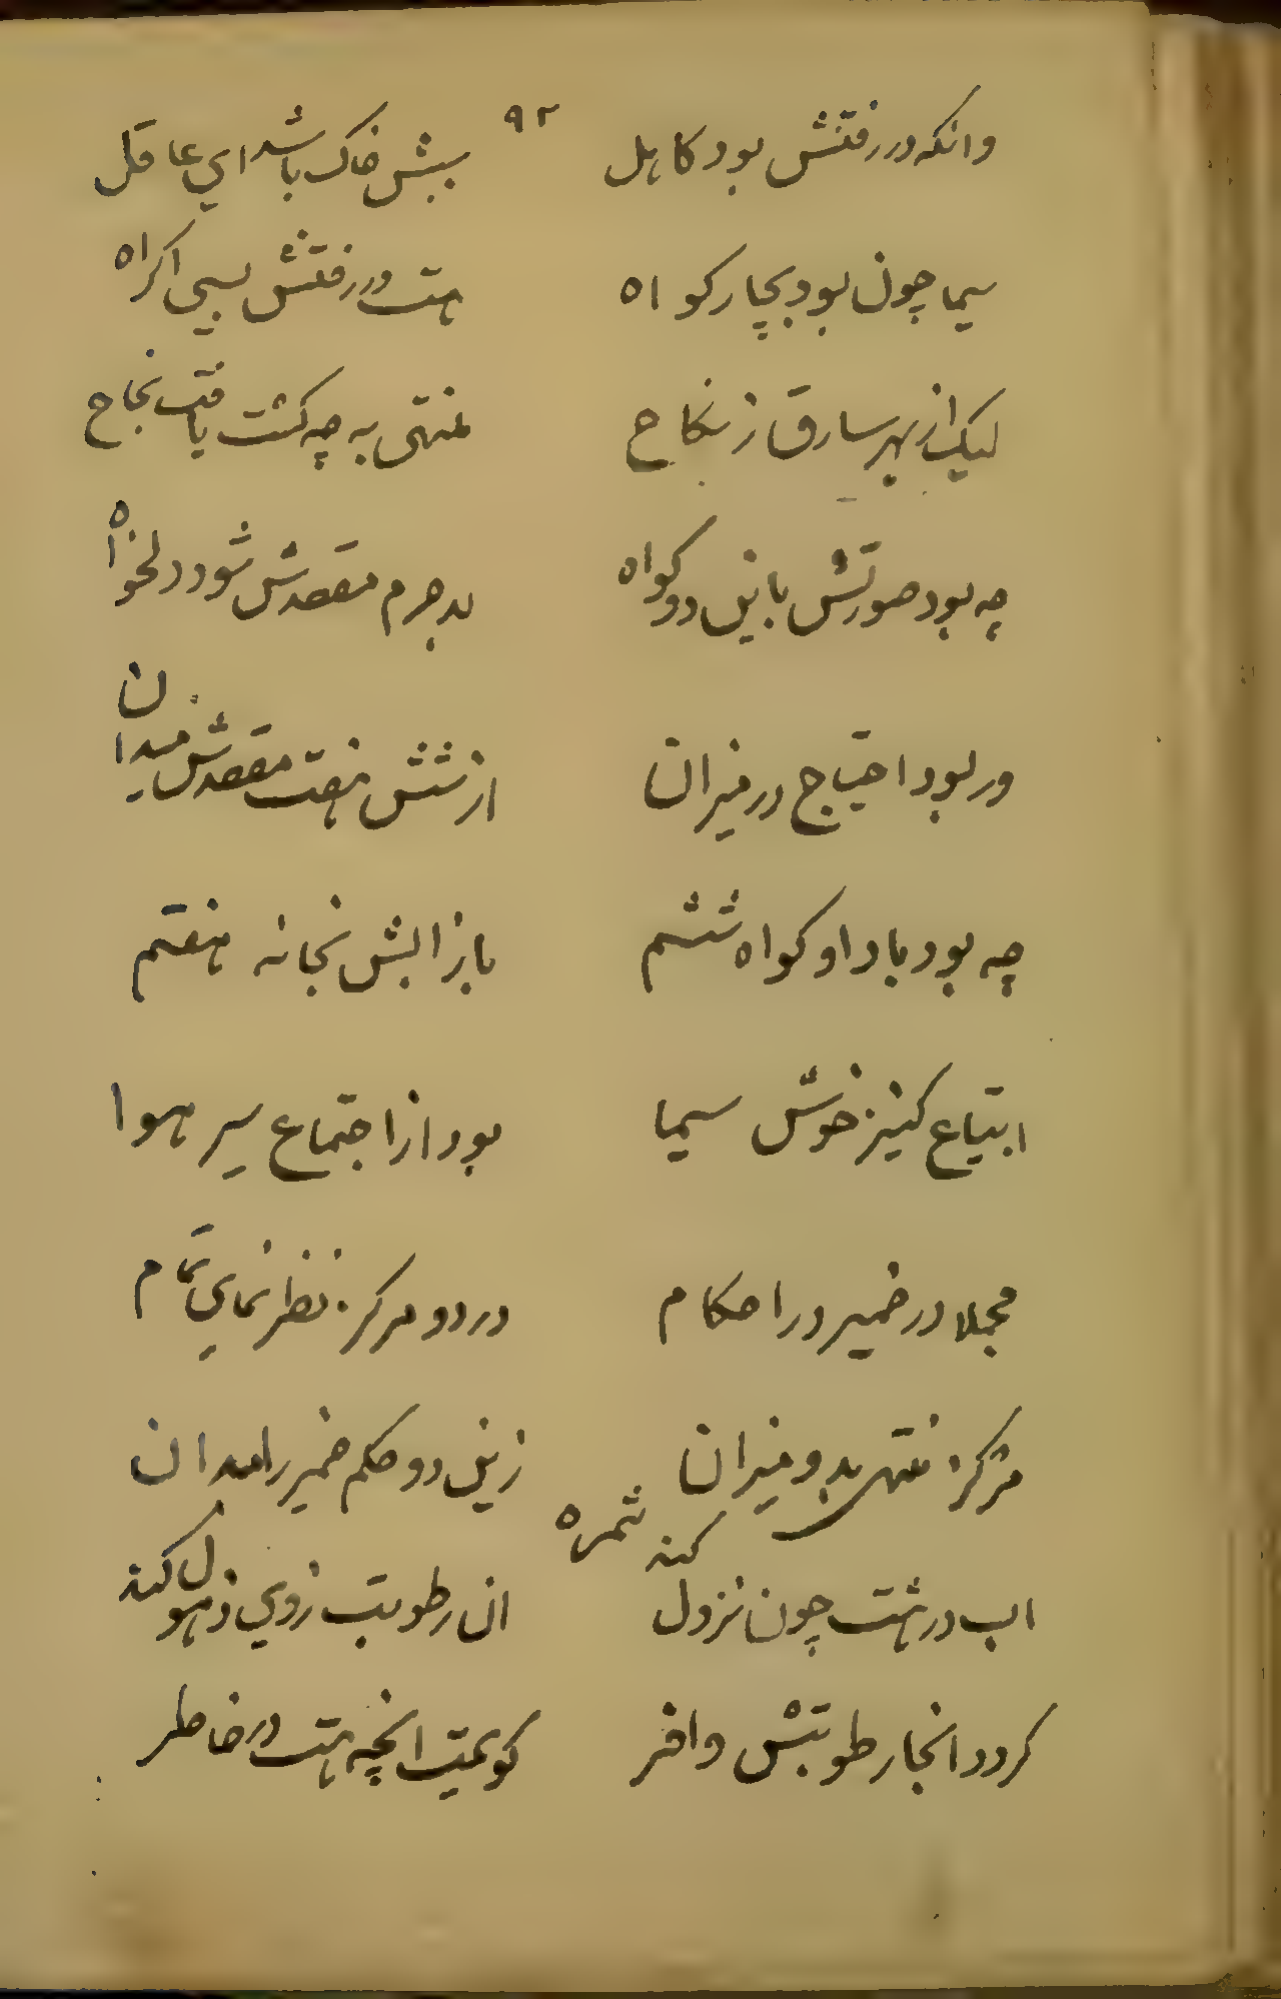 ۹۲
وانکه در رفتنش بود کاهل بیش خاک باشد ای عاقل
سیما چون بود بچار کواه هست در رفتنش بسی اکراه
لیک از بهر سارق ز نکاح منتهی به چه کشت یافت نجاح
چه بود صورتش باین دو کواه بد جرم مقصدش شود دلخواه
ور بود احتیاج در میزان از شش هفت مقصدش میدان
چه بود باد او کواه ششم باز ابش نجانه هفتم
ابتیاع کنیز خوش سیما بود از اجتماع سیر هوا
مجملا در ضمیر در احکام در دو مرکز نظر نمای تمام
مرکز منتهی بدو میزان زین دو حکم ضمیر را میدان
کند ثمره
اب در هشت چون نزول ان رطوبت زوی ذهول کند
کردد انجا رطوبتش وافر کویمت انچه هست در خاطر